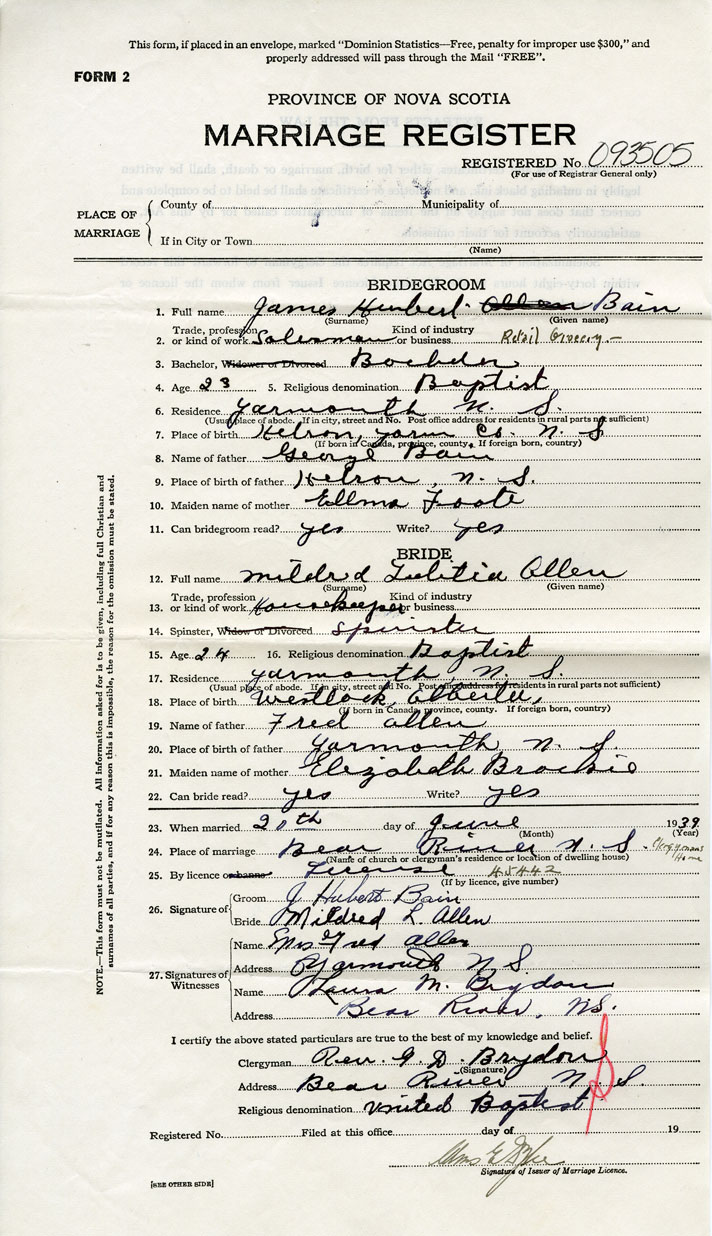 This form, if placed in an envelope, marked "Dominion Statistics—Free, penalty for improper use $300," and
properly addressed will pass through the Mail "FREE".
FORM 2
PROVINCE OF NOVA SCOTIA
MARRIAGE REGISTER
REGISTERED No. 093505
(For use of Registrar General only)
PLACE OF MARRIAGE
County of Municipality of
If in City or Town
(Name)
BRIDEGROOM
1. Full name James Hubert Allen Bain
(Surname) (Given name)
2. Trade, profession or kind of work Salesman Kind of industry or business Retail Grocery
3. Bachelor, Widower or Divorced Bachelor
4. Age 23 5. Religious denomination Baptist
6. Residence Yarmouth N. S.
(Usual place of abode. If in city, street and No. Post office address for residents in rural parts not sufficient)
7. Place of birth Hebron, Yarm Co. N. S.
(If born in Canada, province, county. If foreign born, country)
8. Name of father George Bain
9. Place of birth of father Hebron, N. S.
10. Maiden name of mother Foote
11. Can bridegroom read? yes Write? yes
BRIDE
12. Full name Mildred Letitia Allen
(Surname) (Given name)
13. Trade, profession or kind of work Housekeeper Kind of industry or business
14. Spinster, Widow or Divorced Spinster
15. Age 24 16. Religious denomination Baptist
17. Residence Yarmouth, N. S.
(Usual place of abode. If in city, street and No. Post office address of residents in rural parts not sufficient)
18. Place of birth Westlock, Alberta,
(If born in Canada, province, county. If foreign born, country)
19. Name of father Fred Allen
20. Place of birth of father Yarmouth, N. S.
21. Maiden name of mother Elizabeth Brockie
22. Can bride read? yes Write? yes
23. When married 20th day of June 1939
(Month) (Year)
24. Place of marriage Bear River N. S. - Clergymans Home
(Name of church or clergyman's residence or location of dwelling house)
25. By licence or banns License 45442
(If by licence, give number)
26. Signature of
Groom J Hubert Bain
Bride Mildred L. Allen
27. Signatures of Witnesses
Name Mrs Fred Allen
Address Yarmouth N S.
Name Laura M. Brydon
Address Bear River, N.S.
I certify the above stated particulars are true to the best of my knowledge and belief.
Clergyman Rev. G. D. Brydon
(Signature)
Address Bear River N. S.
Religious denomination United Baptist
Registered No. Filed at this office day of 19
Signature of Issuer of Marriage Licence.
[SEE OTHER SIDE]
NOTE.—This form must not be mutilated. All information asked for is to be given, including full Christian and
surnames of all parties, and if for any reason this is impossible, the reason for the omission must be stated.